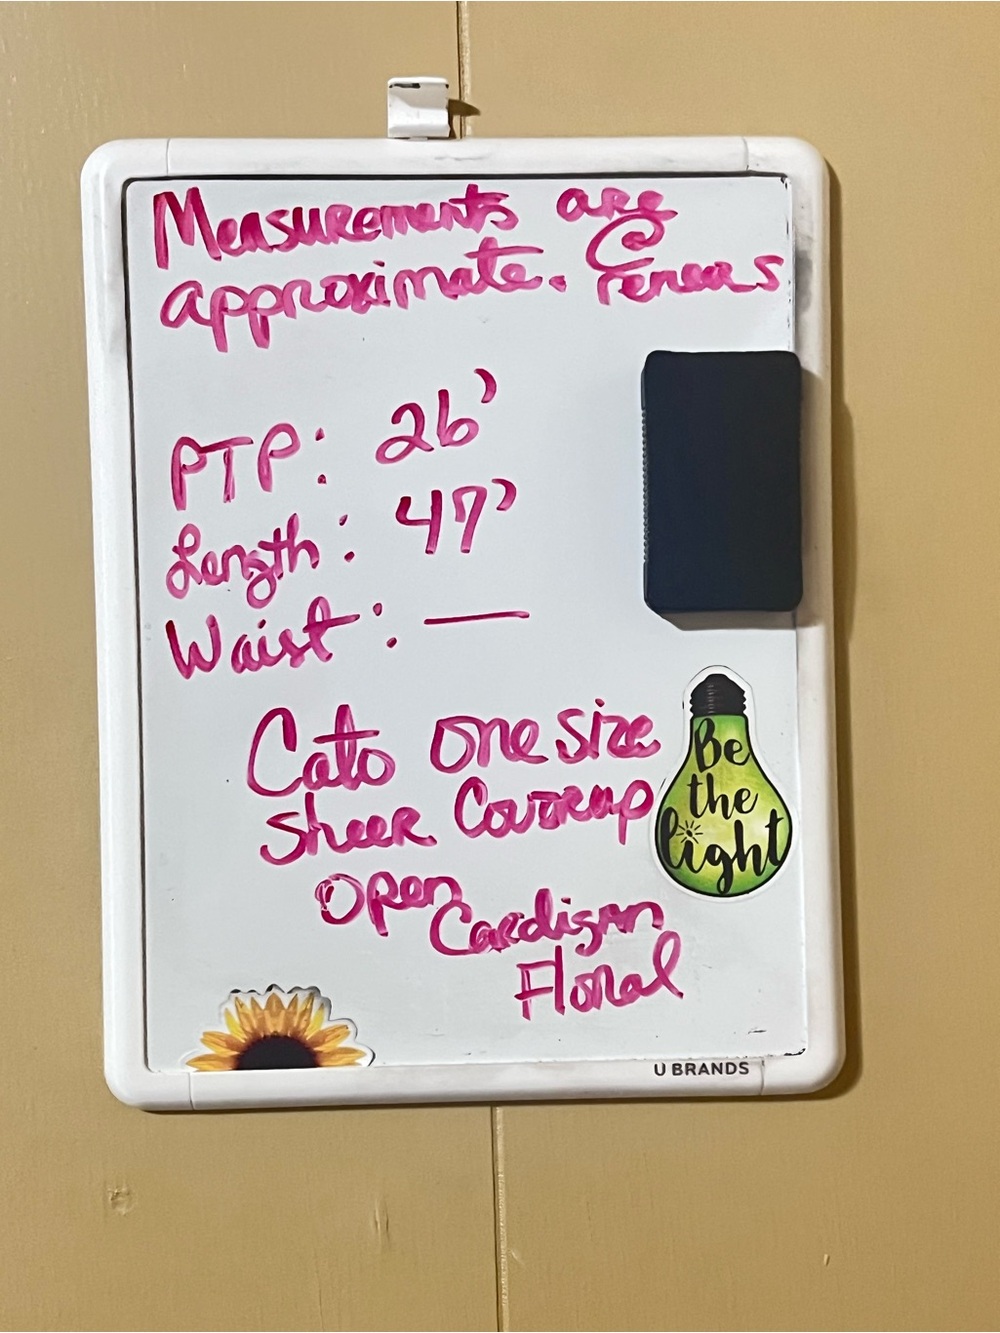 Measurements are
approximate. @ renea s
PTP: 26'
Length: 47'
Waist: —
Cato one size
sheer Coverup
Open
Cardigan
Floral
Be
the
light
U BRANDS